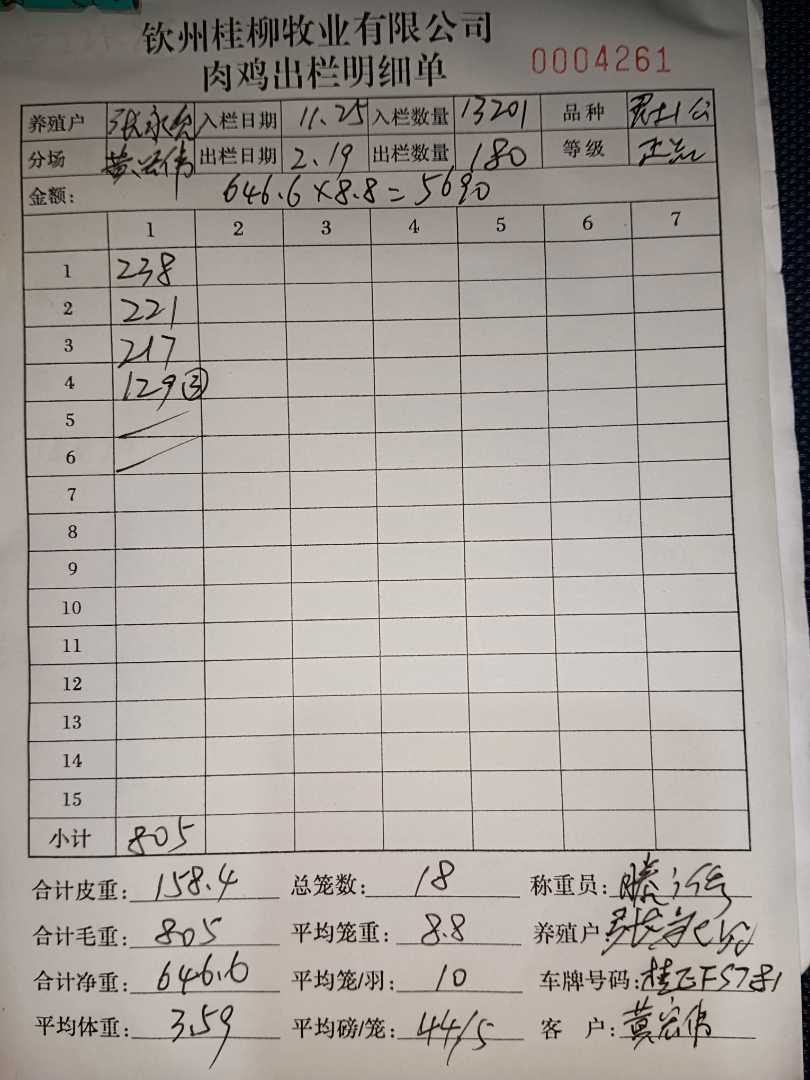 钦州桂柳牧业有限公司
肉鸡出栏明细单 0004261
养殖户 张永 入栏日期 11.25 入栏数量 13201 品种
分场 黄宏伟 出栏日期 2.19 出栏数量 180 等级 正
金额: 646.6×8.8=5690
1 2 3 4 5 6 7
1 238
2 221
3 217
4 129③
5
6
7
8
9
10
11
12
13
14
15
小计 805
合计皮重: 158.4 总笼数: 18 称重员:
合计毛重: 805 平均笼重: 8.8 养殖户 张
合计净重: 646.6 平均笼/羽: 10 车牌号码:
平均体重: 3.59 平均磅/笼: 44/5 客 户: 黄宏伟